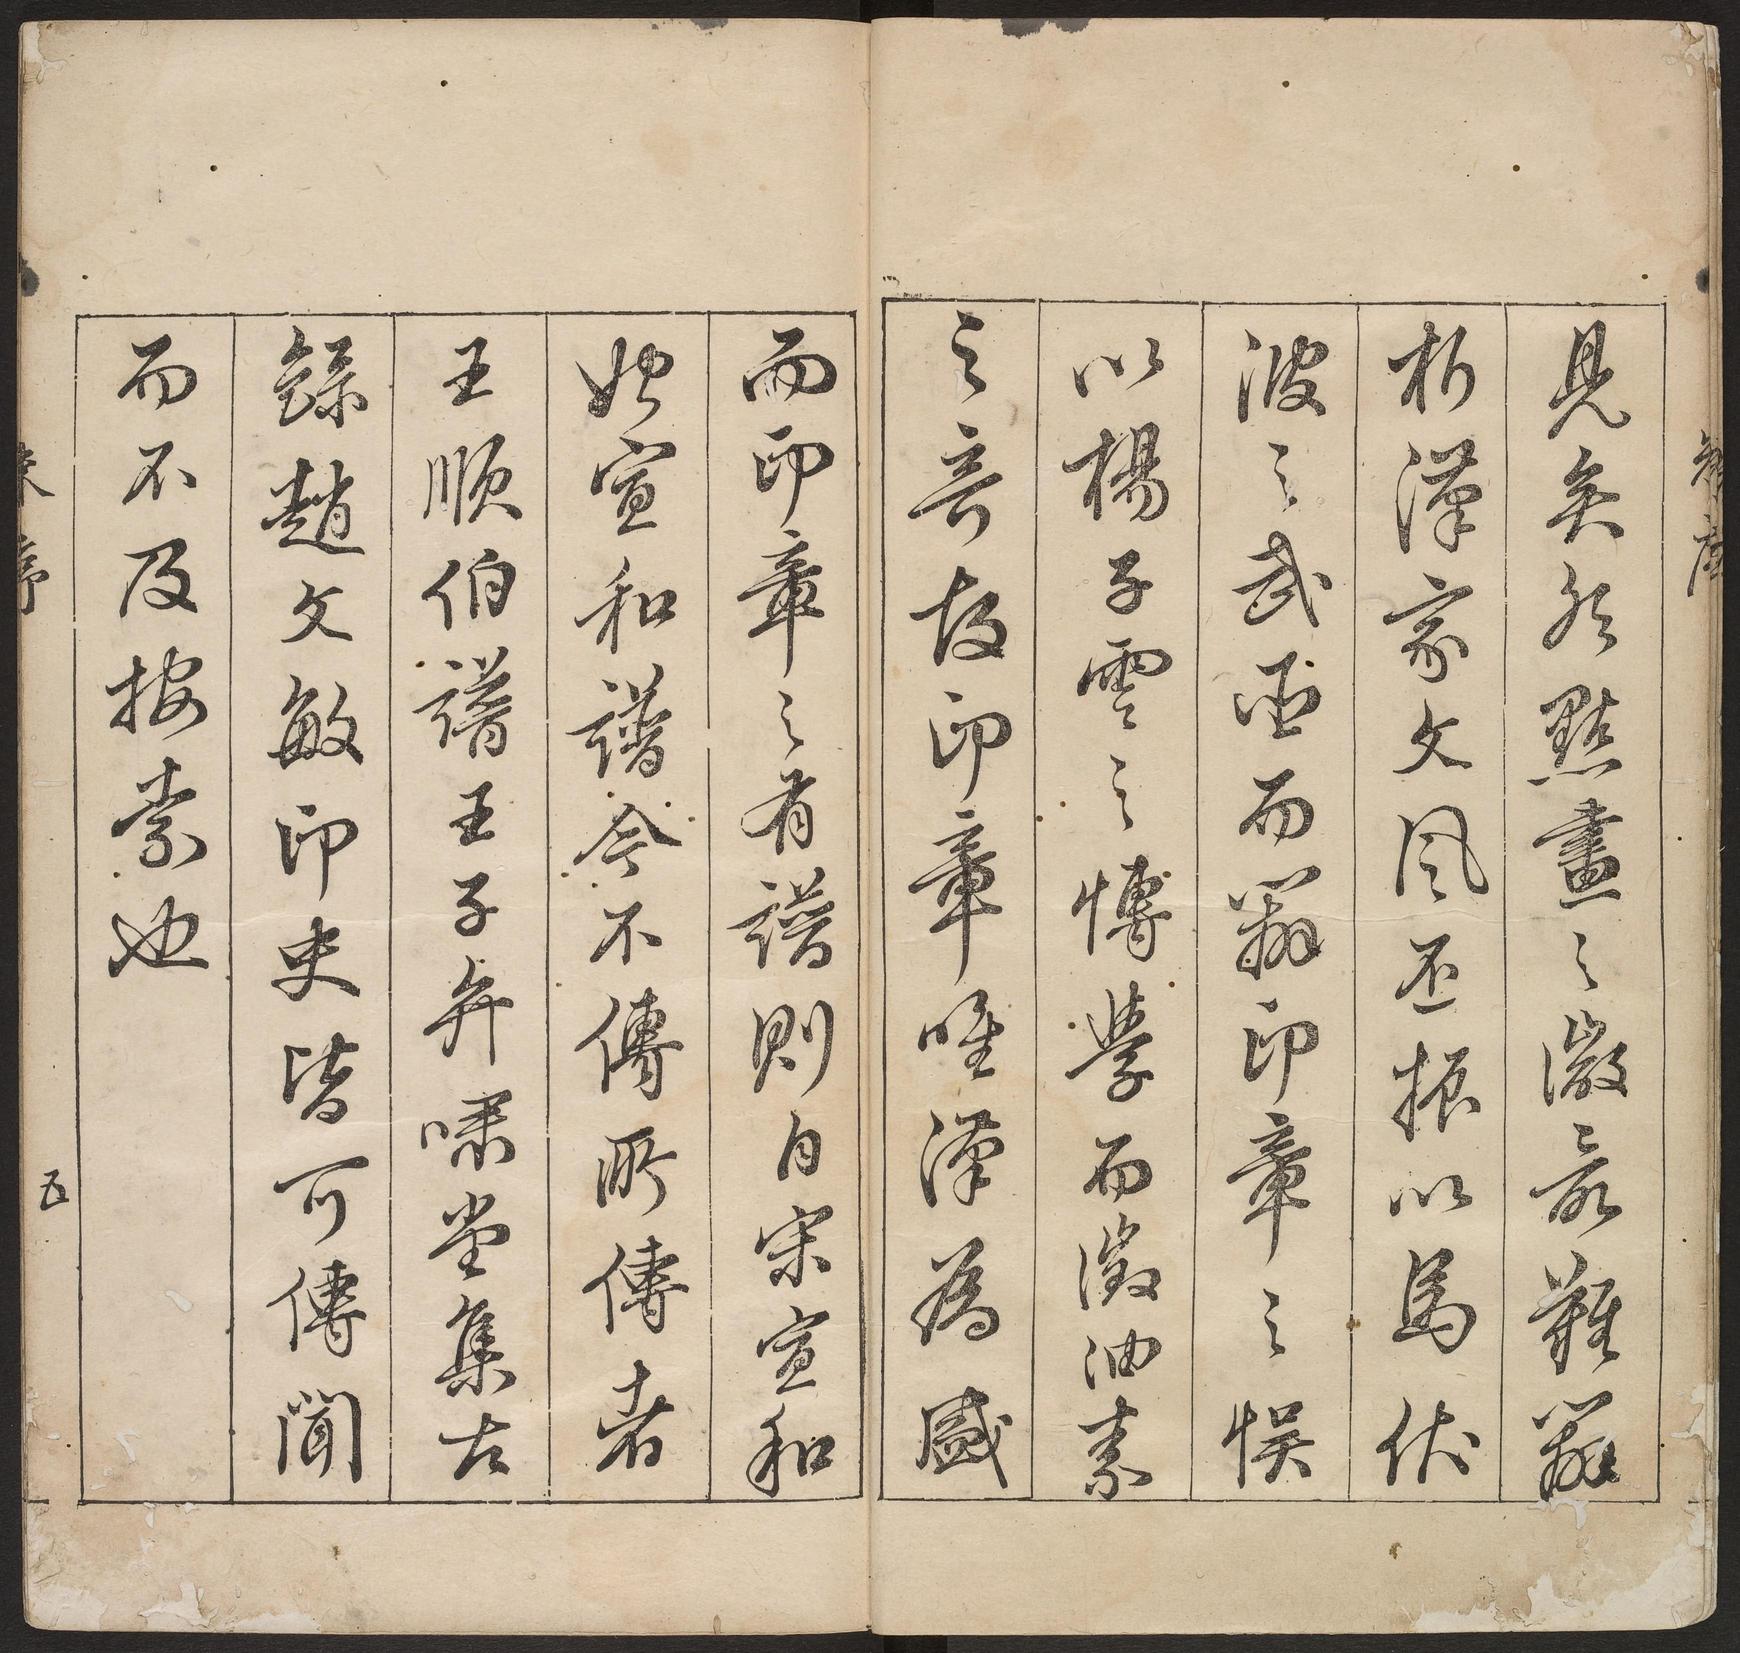 見矣然點畫之微最難辨
析漢家文風丕振以馬伏
波之武臣而辨印章之悞
以楊子雲之博學而徵油素
之音故印章唯漢為盛
而印章之有譜則自宋宣和
始宣和譜今不傳所傳者
王順伯譜王子弁嘯堂集古
錄趙文敏印史皆可傳聞
而不及按索也
五